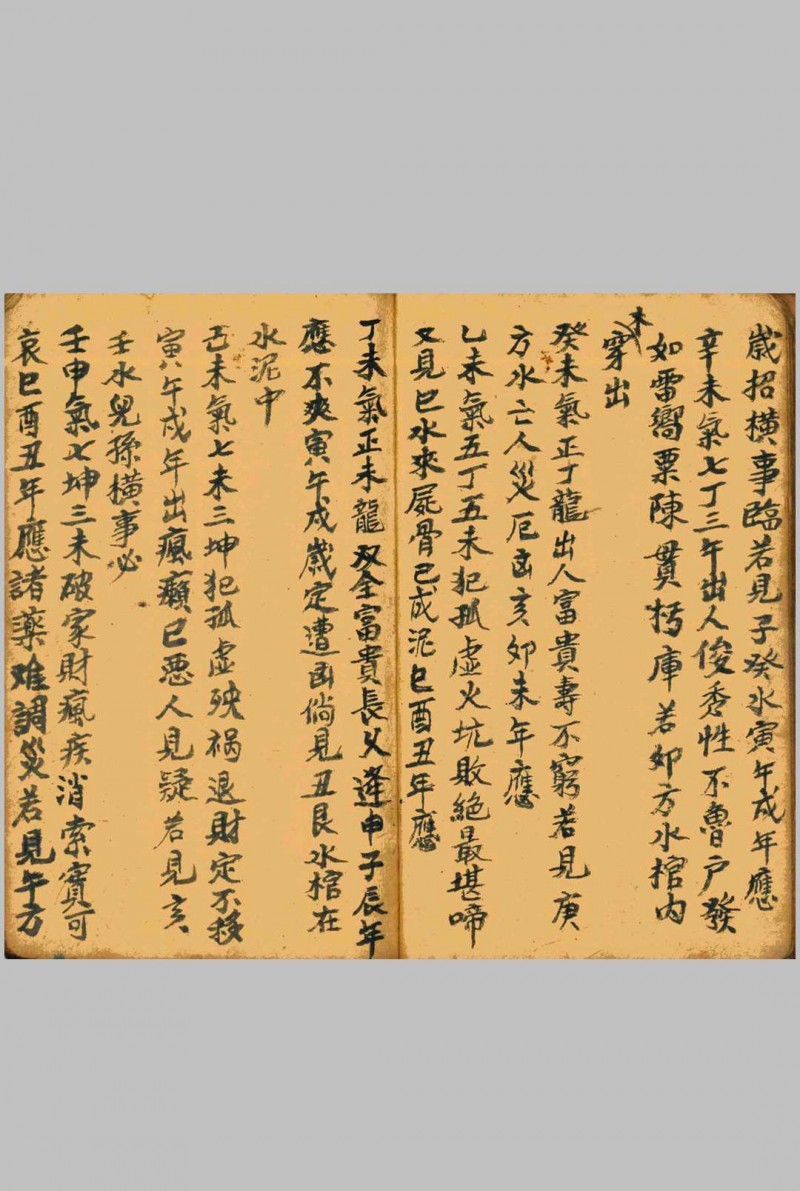 歲招橫事臨若見子癸水寅午戌年應
辛未氣七丁三午出人俊秀性不魯户發
如雷嚮粟陳貫朽庫若卯方水棺内
木
穿出
癸未氣正丁龍出人富貴壽不窮若見庚
方水亡人災厄凶亥卯未年應
乙未氣五丁五未犯孤虛火坑敗絕最堪啼
又見巳水來屍骨已成泥巳酉丑年應
丁未氣正未龍双全富貴長久逢申子辰年
應不爽寅午戌歲定遭凶倘見丑艮水棺在
水泥中
己未氣七未三坤犯孤虛殃禍退財定不移
寅午戌年出瘋癲已惡人見疑若見亥
壬水兒孫橫事必
壬申氣七坤三未破家財瘋疾消索實可
哀巳酉丑年應諸藥难調災若見午方